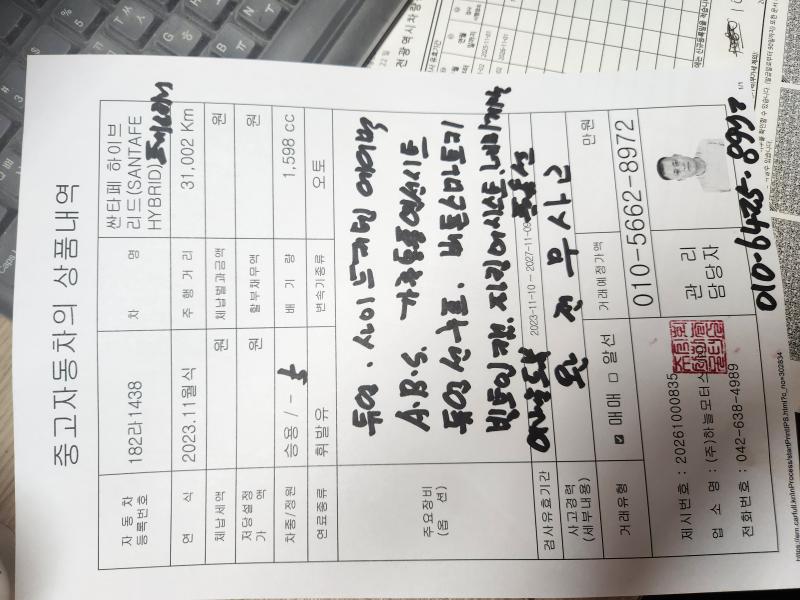 중고자동차의 상품내역
자동차등록번호 182라1438 차 명 싼타페 하이브리드(SANTAFE HYBRID)
연 식 2023.11월식 주 행 거 리 31,002 Km
체납세액 원 체납벌과금액 원
저당설정가 액 원 할부채무액 원
차종/정원 승용 / - 5 배 기 량 1,598 cc
연료종류 휘발유 변속기종류 오토
주요장비(옵 션)
듀얼. 사이드커튼 에어백
A.B.S. 가죽통풍열선시트
듀얼 선루프. 버튼스마트키
빌트인캠. 차선어시스트. 네비게이션
검사유효기간 2023-11-10 ~ 2027-11-09
사고경력(세부내용) 완전무사고
거래유형 ☑ 매매 □ 알선 거래예정가액 만원
제시번호 : 20261000835
업 소 명 : (주)하늘모터스
전화번호 : 042-638-4989
관 리 담당자
010-5662-8972
010-6425-8992
1/1
https://em.carfull.kr/inProcess/startPrintIPS.html?c_no=302834